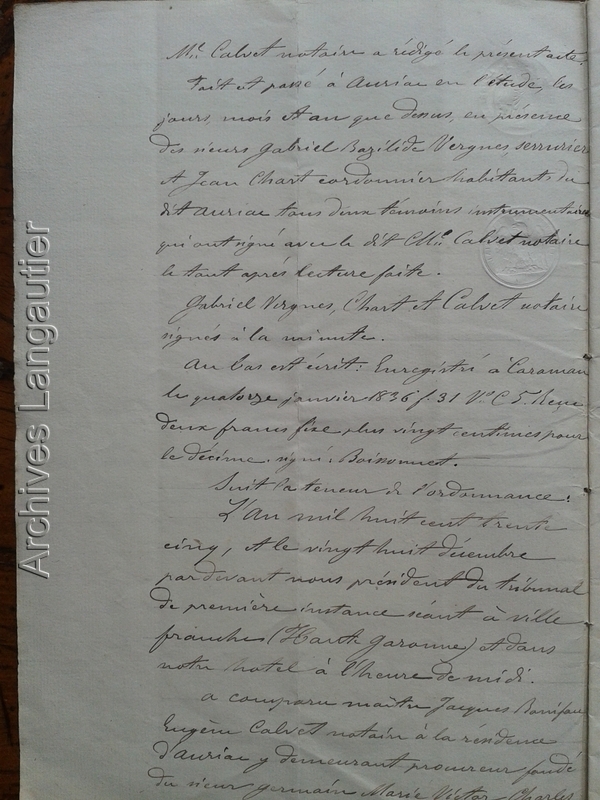 Me. Calvet notaire a rédigé le présent acte.
Fait et passé à Auriac en l'étude, les
jours, mois et an que dessus, en présence
des sieurs Gabriel Bazilide Vergnes, serrurier
et Jean Chart cordonnier habitants du
dit Auriac tous deux témoins instrumentaires
qui ont signé avec le dit Me. Calvet notaire
le tout après lecture faite.
Gabriel Vergnes, Chart et Calvet notaire
signés à la minute.
Au bas est écrit: Enregistré à Caraman
le quatorze janvier 1836 f. 31 Vo. C 5. Reçu
deux francs fixe plus vingt centimes pour
le décime, signé: Boissonnet.
Suit la teneur de l'ordonnance:
L'An mil huit cent trente
cinq, et le vingt huit décembre
par devant nous président du tribunal
de première instance séant à ville
franche (Haute Garonne) et dans
notre hotel à l'heure de midi.
a comparu maître Jacques Bonifau
Eugène Calvet notaire à la résidence
d'Auriac y demeurant procureur fondé
du sieur Germain Marie Victor Charles
Archives Langautier